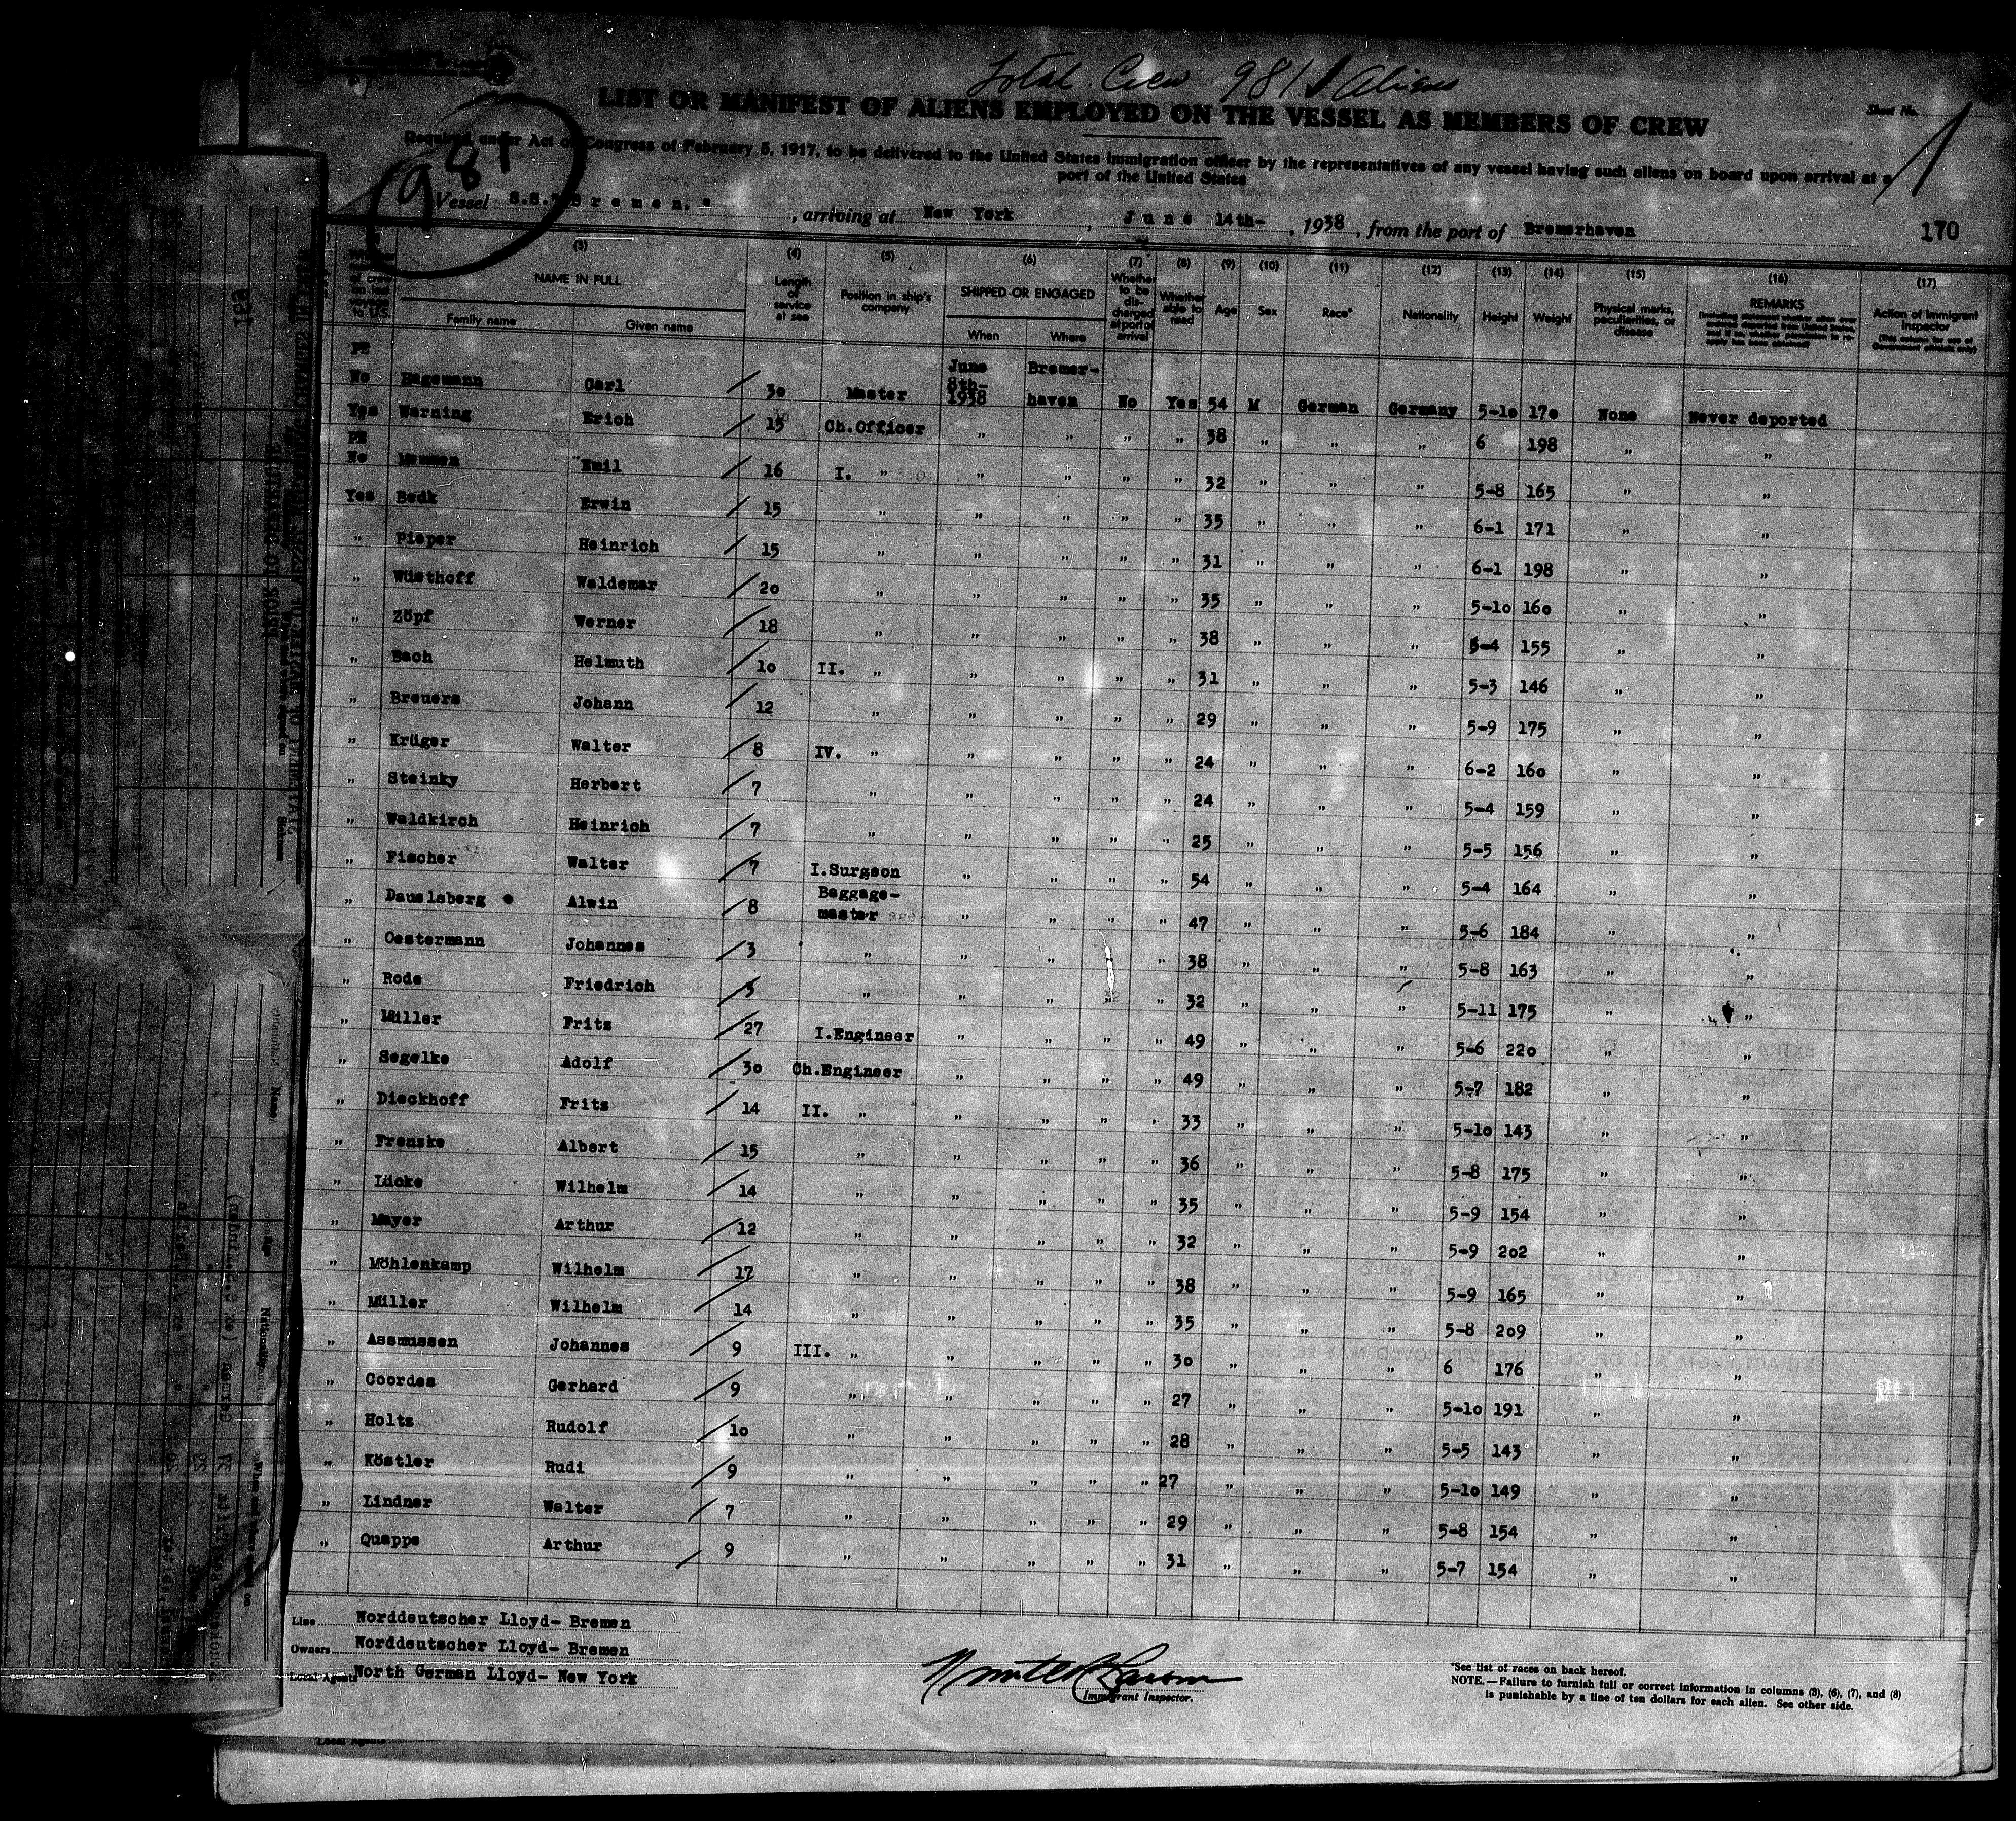 Total Crew 981 Aliens
LIST OR MANIFEST OF ALIENS EMPLOYED ON THE VESSEL AS MEMBERS OF CREW
Sheet No. 1
Required under Act of Congress of February 5, 1917, to be delivered to the United States immigration officer by the representatives of any vessel having such aliens on board upon arrival at a
port of the United States
981
Vessel S.S." B r e m e n. " , arriving at New York , J u n e 14th- , 1938 , from the port of Bremerhaven 170
(3) (4) (5) (6) (7) (8) (9) (10) (11) (12) (13) (14) (15) (16) (17)
NAME IN FULL Family name Given name Length of service at sea Position in ship's company SHIPPED OR ENGAGED When Where Whether to be discharged at port of arrival Whether able to read Age Sex Race* Nationality Height Weight Physical marks, peculiarities, or disease REMARKS Action of Immigrant Inspector
PE June Bremer-
No Hagemann Carl 30 Master 8th- 1938 haven No Yes 54 M German Germany 5-10 170 None Never deported
Yes Warning Erich 15 Ch.Officer " " " " 38 " " " 6 198 " "
PE
No Emil 16 I. " " " " " 32 " " " 5-8 165 " "
Yes Beck Erwin 15 " " " " " 35 " " " 6-1 171 " "
" Pieper Heinrich 15 " " " " " 31 " " " 6-1 198 " "
" Wüsthoff Waldemar 20 " " " " " 35 " " " 5-10 160 " "
" Zöpf Werner 18 " " " " " 38 " " " 5-4 155 " "
" Bach Helmuth 10 II. " " " " " 31 " " " 5-3 146 " "
" Breuers Johann 12 " " " " " 29 " " " 5-9 175 " "
" Krüger Walter 8 IV. " " " " " 24 " " " 6-2 160 " "
" Steinky Herbert 7 " " " " " 24 " " " 5-4 159 " "
" Waldkirch Heinrich 7 " " " " " 25 " " " 5-5 156 " "
" Fischer Walter 7 I.Surgeon " " " " 54 " " " 5-4 164 " "
" Dauelsberg Alwin 8 Baggage-master " " " " 47 " " " 5-6 184 " "
" Oestermann Johannes 3 " " " " 38 " " " 5-8 163 " "
" Rode Friedrich 3 " " " " " 32 " " " 5-11 175 " "
" Müller Fritz 27 I.Engineer " " " " 49 " " " 5-6 220 " "
" Segelke Adolf 30 Ch.Engineer " " " " 49 " " " 5-7 182 " "
" Dieckhoff Fritz 14 II. " " " " " 33 " " " 5-10 143 " "
" Frenske Albert 15 " " " " " 36 " " " 5-8 175 " "
" Lücke Wilhelm 14 " " " " " 35 " " " 5-9 154 " "
" Mayer Arthur 12 " " " " " 32 " " " 5-9 202 " "
" Möhlenkamp Wilhelm 17 " " " " " 38 " " " 5-9 165 " "
" Müller Wilhelm 14 " " " " " 35 " " " 5-8 209 " "
" Assmussen Johannes 9 III. " " " " " 30 " " " 6 176 " "
" Coordes Gerhard 9 " " " " " 27 " " " 5-10 191 " "
" Holtz Rudolf 10 " " " " " 28 " " " 5-5 143 " "
" Köstler Rudi 9 " " " " " 27 " " " 5-10 149 " "
" Lindner Walter 7 " " " " " 29 " " " 5-8 154 " "
" Quappe Arthur 9 " " " " " 31 " " " 5-7 154 " "
Line Norddeutscher Lloyd- Bremen
Owners Norddeutscher Lloyd- Bremen
Local Agents North German Lloyd- New York
Immigrant Inspector.
*See list of races on back hereof.
NOTE.—Failure to furnish full or correct information in columns (3), (6), (7), and (8)
is punishable by a fine of ten dollars for each alien. See other side.